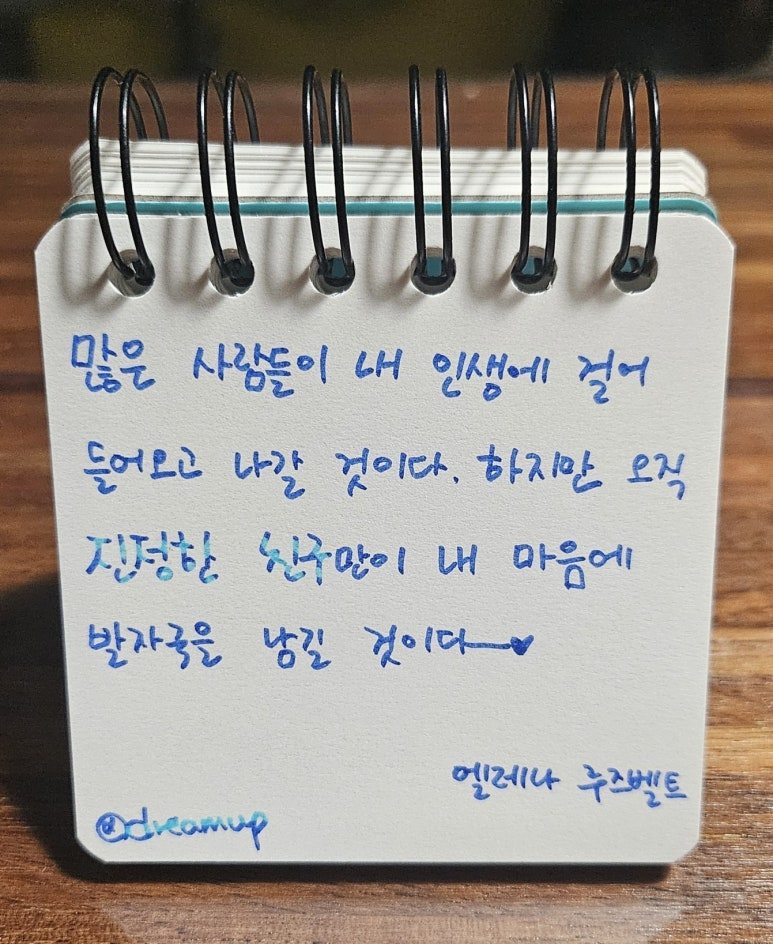 많은 사람들이 내 인생에 걸어
들어오고 나갈 것이다. 하지만 오직
진정한 친구만이 내 마음에
발자국을 남길 것이다
엘레나 루즈벨트
@dreamup